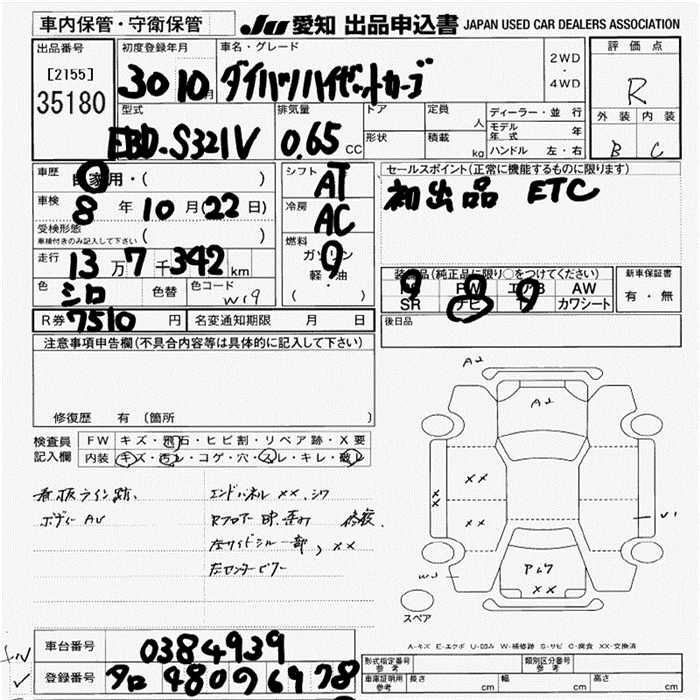 車内保管・守衛保管
JU 愛知 出品申込書 JAPAN USED CAR DEALERS ASSOCIATION
出品番号
[2155]
35180
初度登録年月
30 10月
車名・グレード
ダイハツハイゼットカーゴ
2WD
・
4WD
評価点
R
外装 内装
B C
型式
EBD-S321V
排気量
0.65 CC
ドア
定員 人
形状
積載 kg
ディーラー・並行
モデル年式 年
ハンドル 左・右
車歴
自家用・( )
車検
8 年 10 月(22 日)
受検形態
車検付きのみ記入して下さい ( )
走行
13 万 7 千 342 km
色
シロ
色替
色コード
W19
シフト
AT
冷房
AC
燃料
ガソリン
軽・油
( )
セールスポイント(正常に機能するものに限ります)
初出品 ETC
装備品(純正品に限り○をつけてください)
PW エアB AW
SR ナビ カワシート
新車保証書
有・無
後日品
R券 7510 円 名変通知期限 月 日
注意事項申告欄(不具合内容等は具体的に記入して下さい)
修復歴 有 (箇所
検査員記入欄
FW キズ・飛石・ヒビ割・リペア跡・X要
内装 キズ・汚レ・コゲ・穴・スレ・キレ・破レ
看板ライン跡.
ボディーAU
エンドパネル XX.シワ
Rフロアー 曲.歪み 修複.
左サイドシル一部, XX
左センターピラー
A2
A2
XX
XX
XX
U1
W3
XX
スペア
A-キズ E-エクボ U-凹み W-補修跡 S-サビ C-腐食 XX-交換済
車台番号
0384939
登録番号
480 6978
型式指定番号
参考
類別区分番号
参考
車庫証明用
参考
長さ cm 幅 cm 高さ cm